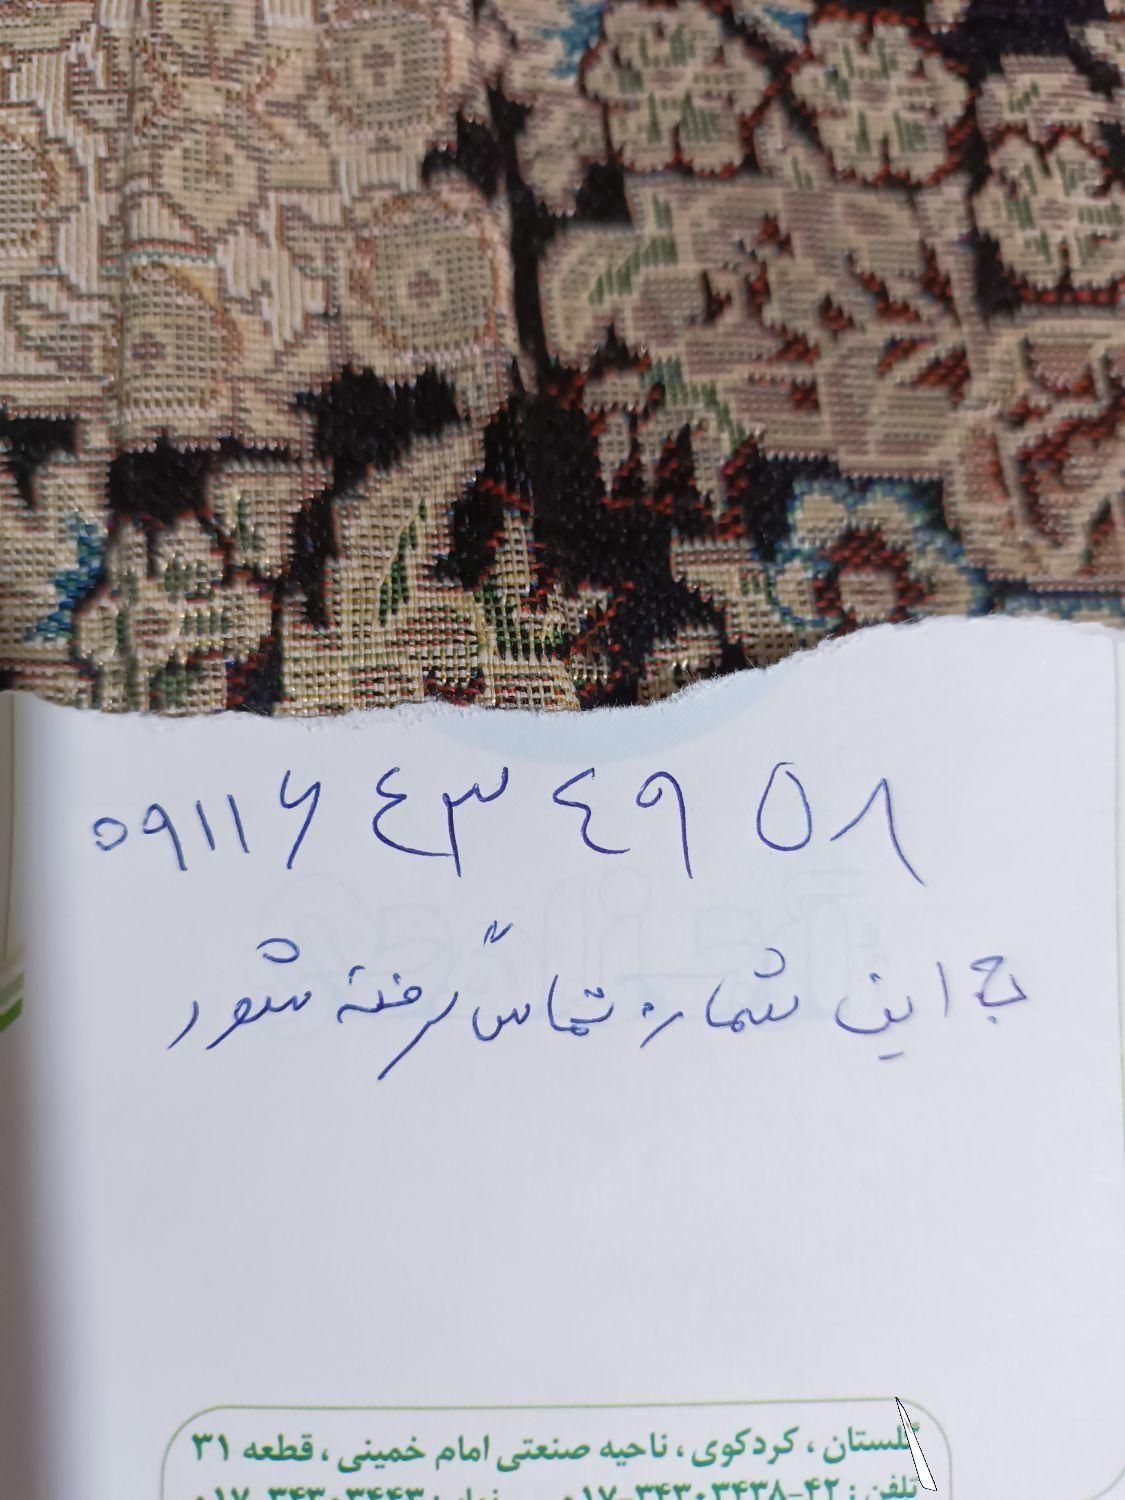 ۰۹۱۱۶۴۳۴۹۵۸
با این شماره تماس گرفته شود
گلستان ، کردکوی ، ناحیه صنعتی امام خمینی ، قطعه ۳۱
تلفن : ۴۲-۰۱۷-۳۴۳۰۳۴۳۸